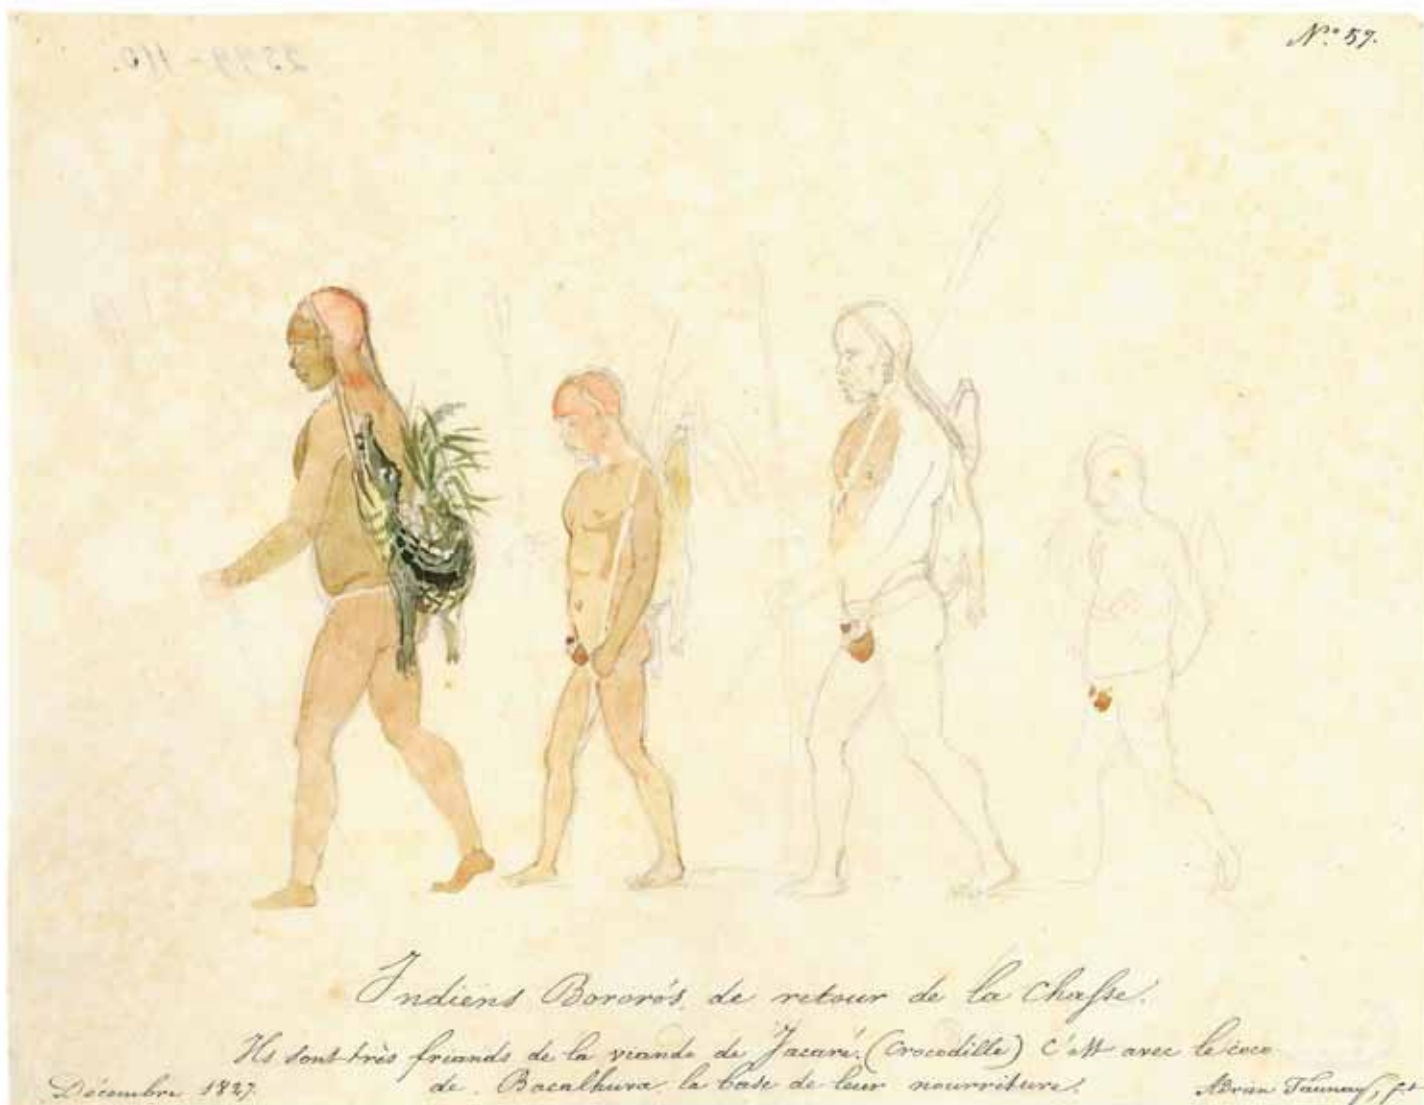 Nº 57.
2599-110.
Indiens Bororós, de retour de la Chasse.
Ils sont très friands de la viande de Jacaré. (Crocodille) C'est avec le coco
de Bacalhuva la base de leur nourriture.
Décembre 1827.
Adrien Taunay, ft